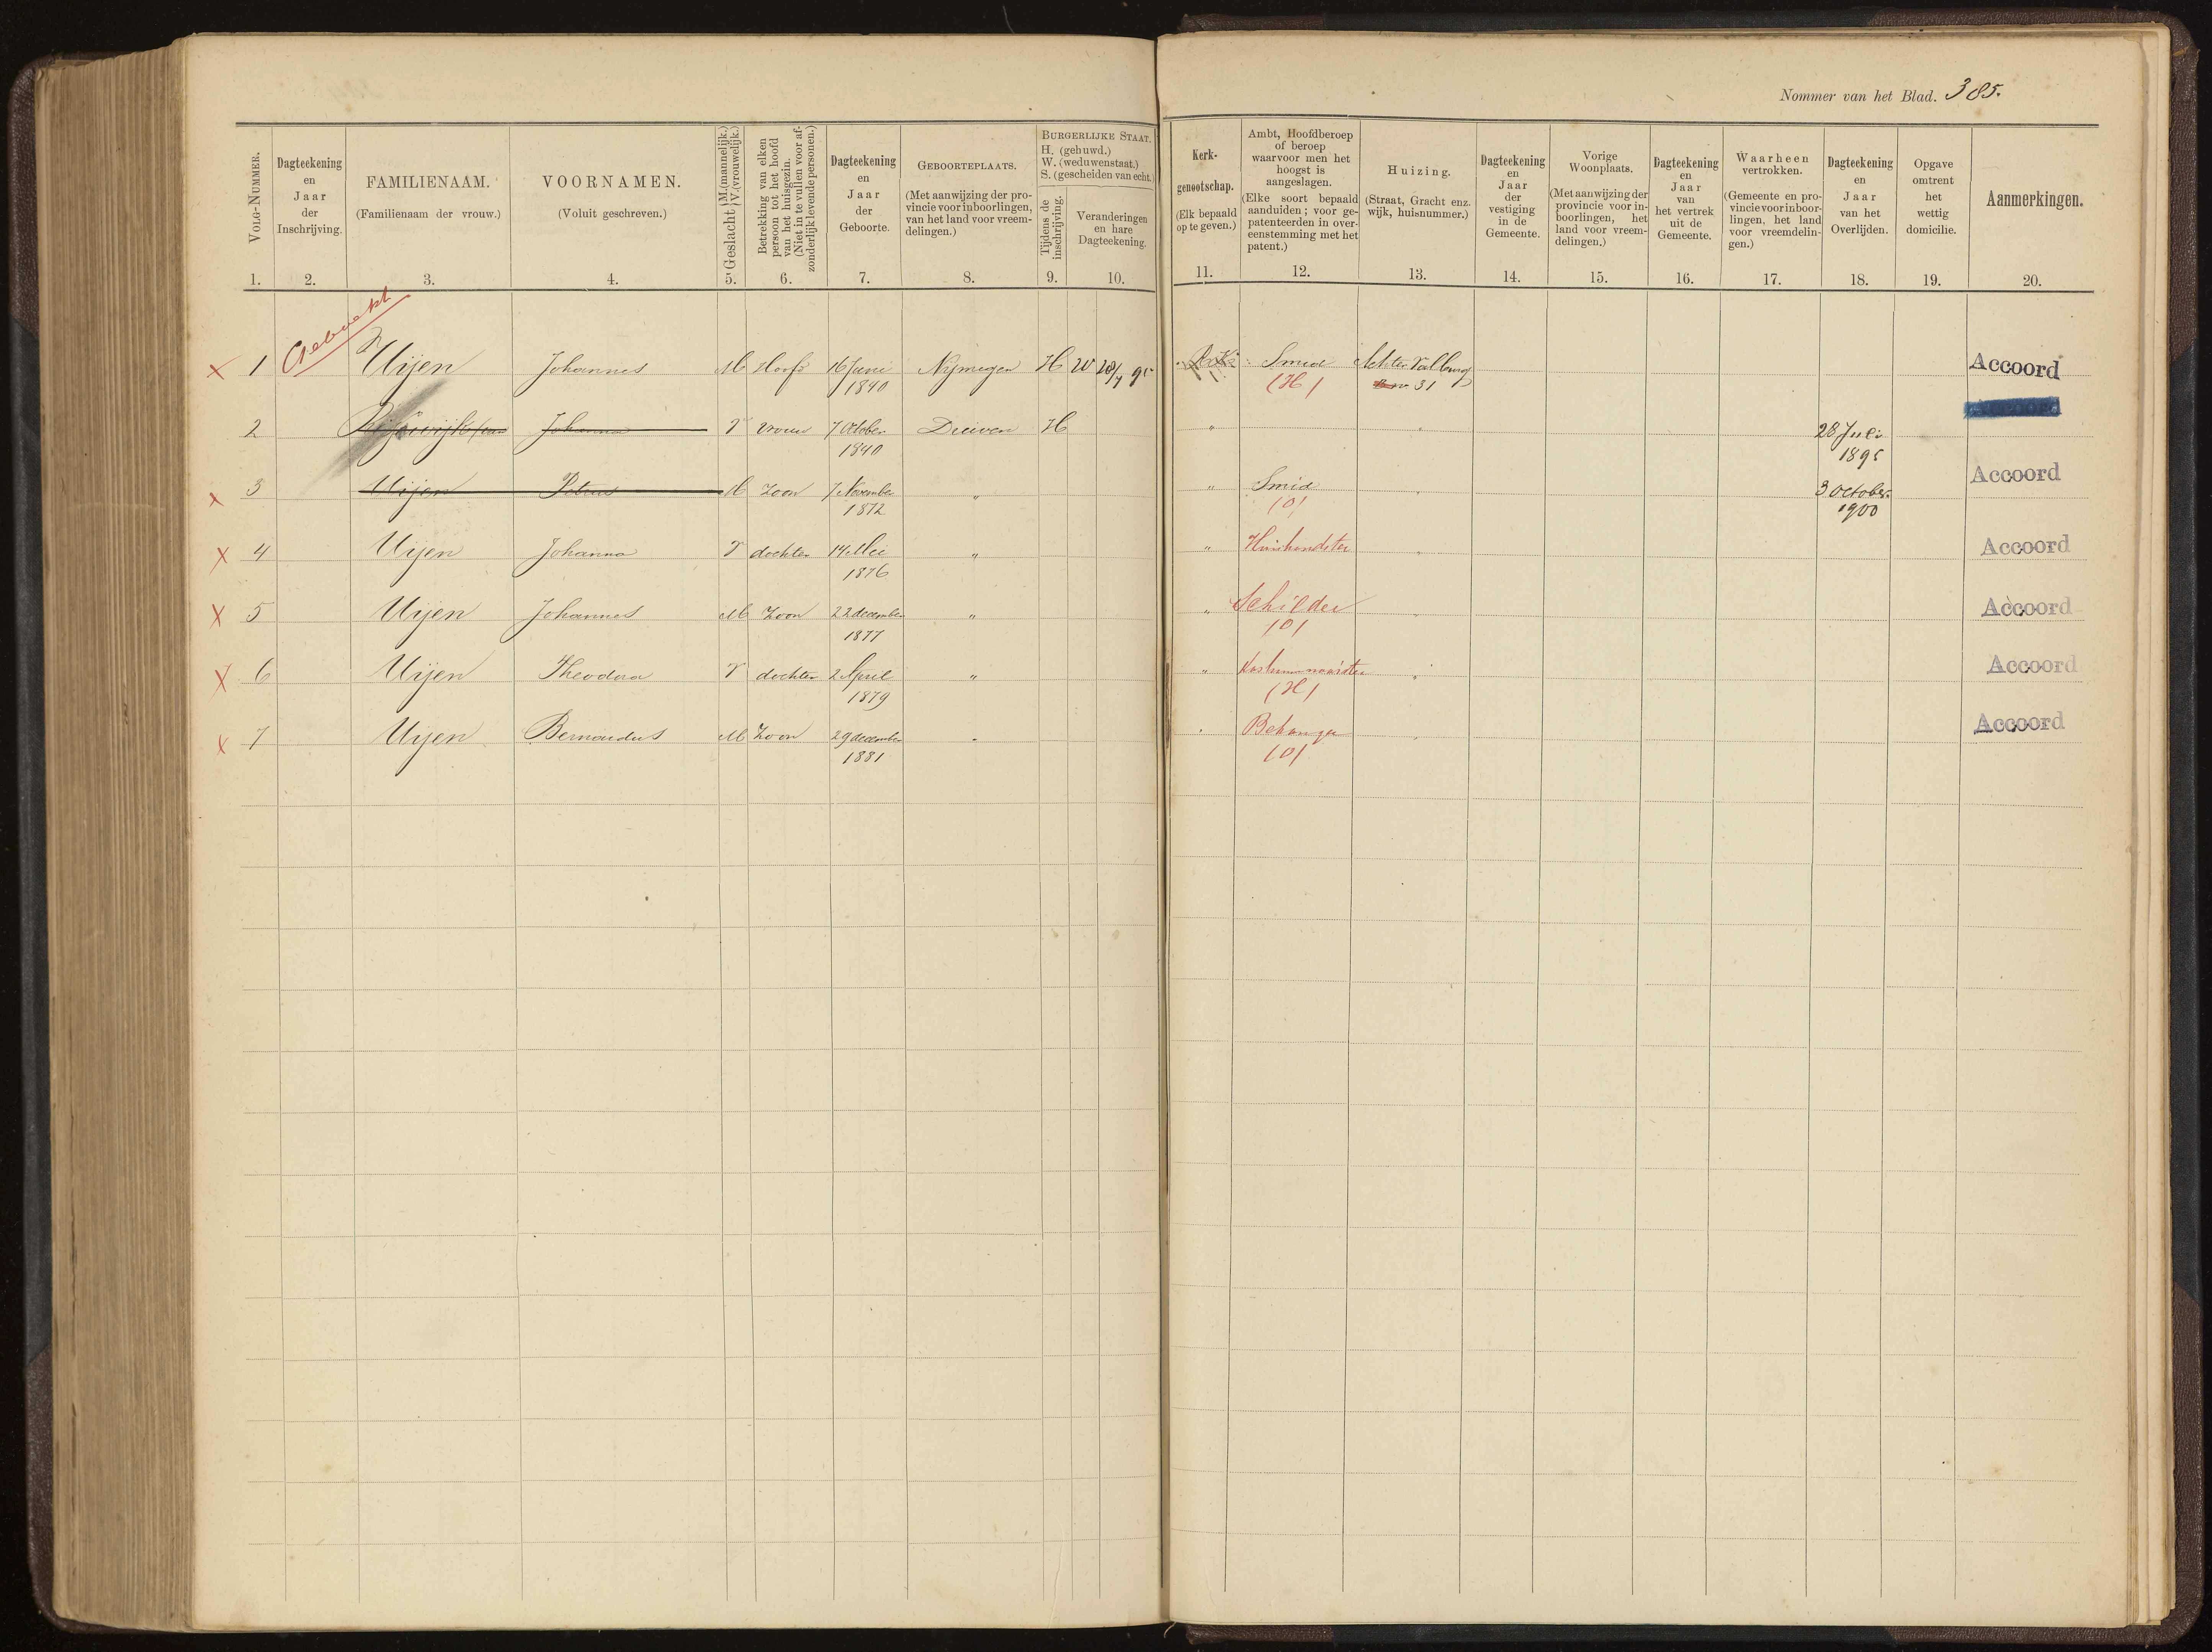 Nommer van het Blad. 385.
VOLG-NUMMER.
1.
Dagteekening
en
Jaar
der
Inschrijving.
2.
FAMILIENAAM.
(Familienaam der vrouw.)
3.
VOORNAMEN.
(Voluit geschreven.)
4.
Geslacht M.(mannelijk.) V.(vrouwelijk.)
5.
Betrekking van elken
persoon tot het hoofd
van het huisgezin.
(Niet in te vullen voor af-
zonderlijk levende personen.)
6.
Dagteekening
en
Jaar
der
Geboorte.
7.
GEBOORTEPLAATS.
(Met aanwijzing der pro-
vincie voor inboorlingen,
van het land voor vreem-
delingen.)
8.
BURGERLIJKE STAAT.
H. (gehuwd.)
W. (weduwenstaat.)
S. (gescheiden van echt.)
Tijdens de
inschrijving.
9.
Veranderingen
en hare
Dagteekening.
10.
Kerk-
genootschap.
(Elk bepaald
op te geven.)
11.
Ambt, Hoofdberoep
of beroep
waarvoor men het
hoogst is
aangeslagen.
(Elke soort bepaald
aanduiden; voor ge-
patenteerden in over-
eenstemming met het
patent.)
12.
Huizing.
(Straat, Gracht enz.
wijk, huisnummer.)
13.
Dagteekening
en
Jaar
der
vestiging
in de
Gemeente.
14.
Vorige
Woonplaats.
(Met aanwijzing der
provincie voor in-
boorlingen, het
land voor vreem-
delingen.)
15.
Dagteekening
en
Jaar
van
het vertrek
uit de
Gemeente.
16.
Waarheen
vertrokken.
(Gemeente en pro-
vincie voor inboor-
lingen, het land
voor vreemdelin-
gen.)
17.
Dagteekening
en
Jaar
van het
Overlijden.
18.
Opgave
omtrent
het
wettig
domicilie.
19.
Aanmerkingen.
20.
Geboekt
x 1 Uijen Johannes M Hoofd 16 Juni Nijmegen H W 28/7 95 Smid Achter Valburg Accoord
1840 (H) 31
2 Johanna V Vrouw 7 October Duiven H " 28 Juli
1840 1895
x 3 Uijen Petrus M Zoon 7 November " " Smid 3 October Accoord
1872 (O) 1900
x 4 Uijen Johanna V dochter 14 Mei " " Huishoudster Accoord
1876
x 5 Uijen Johannes M Zoon 22 december " " Schilder Accoord
1877 (O)
x 6 Uijen Theodora V dochter 2 April " " Accoord
1879 (H)
x 7 Uijen Bernardus M Zoon 29 december " Behanger Accoord
1881 (O)